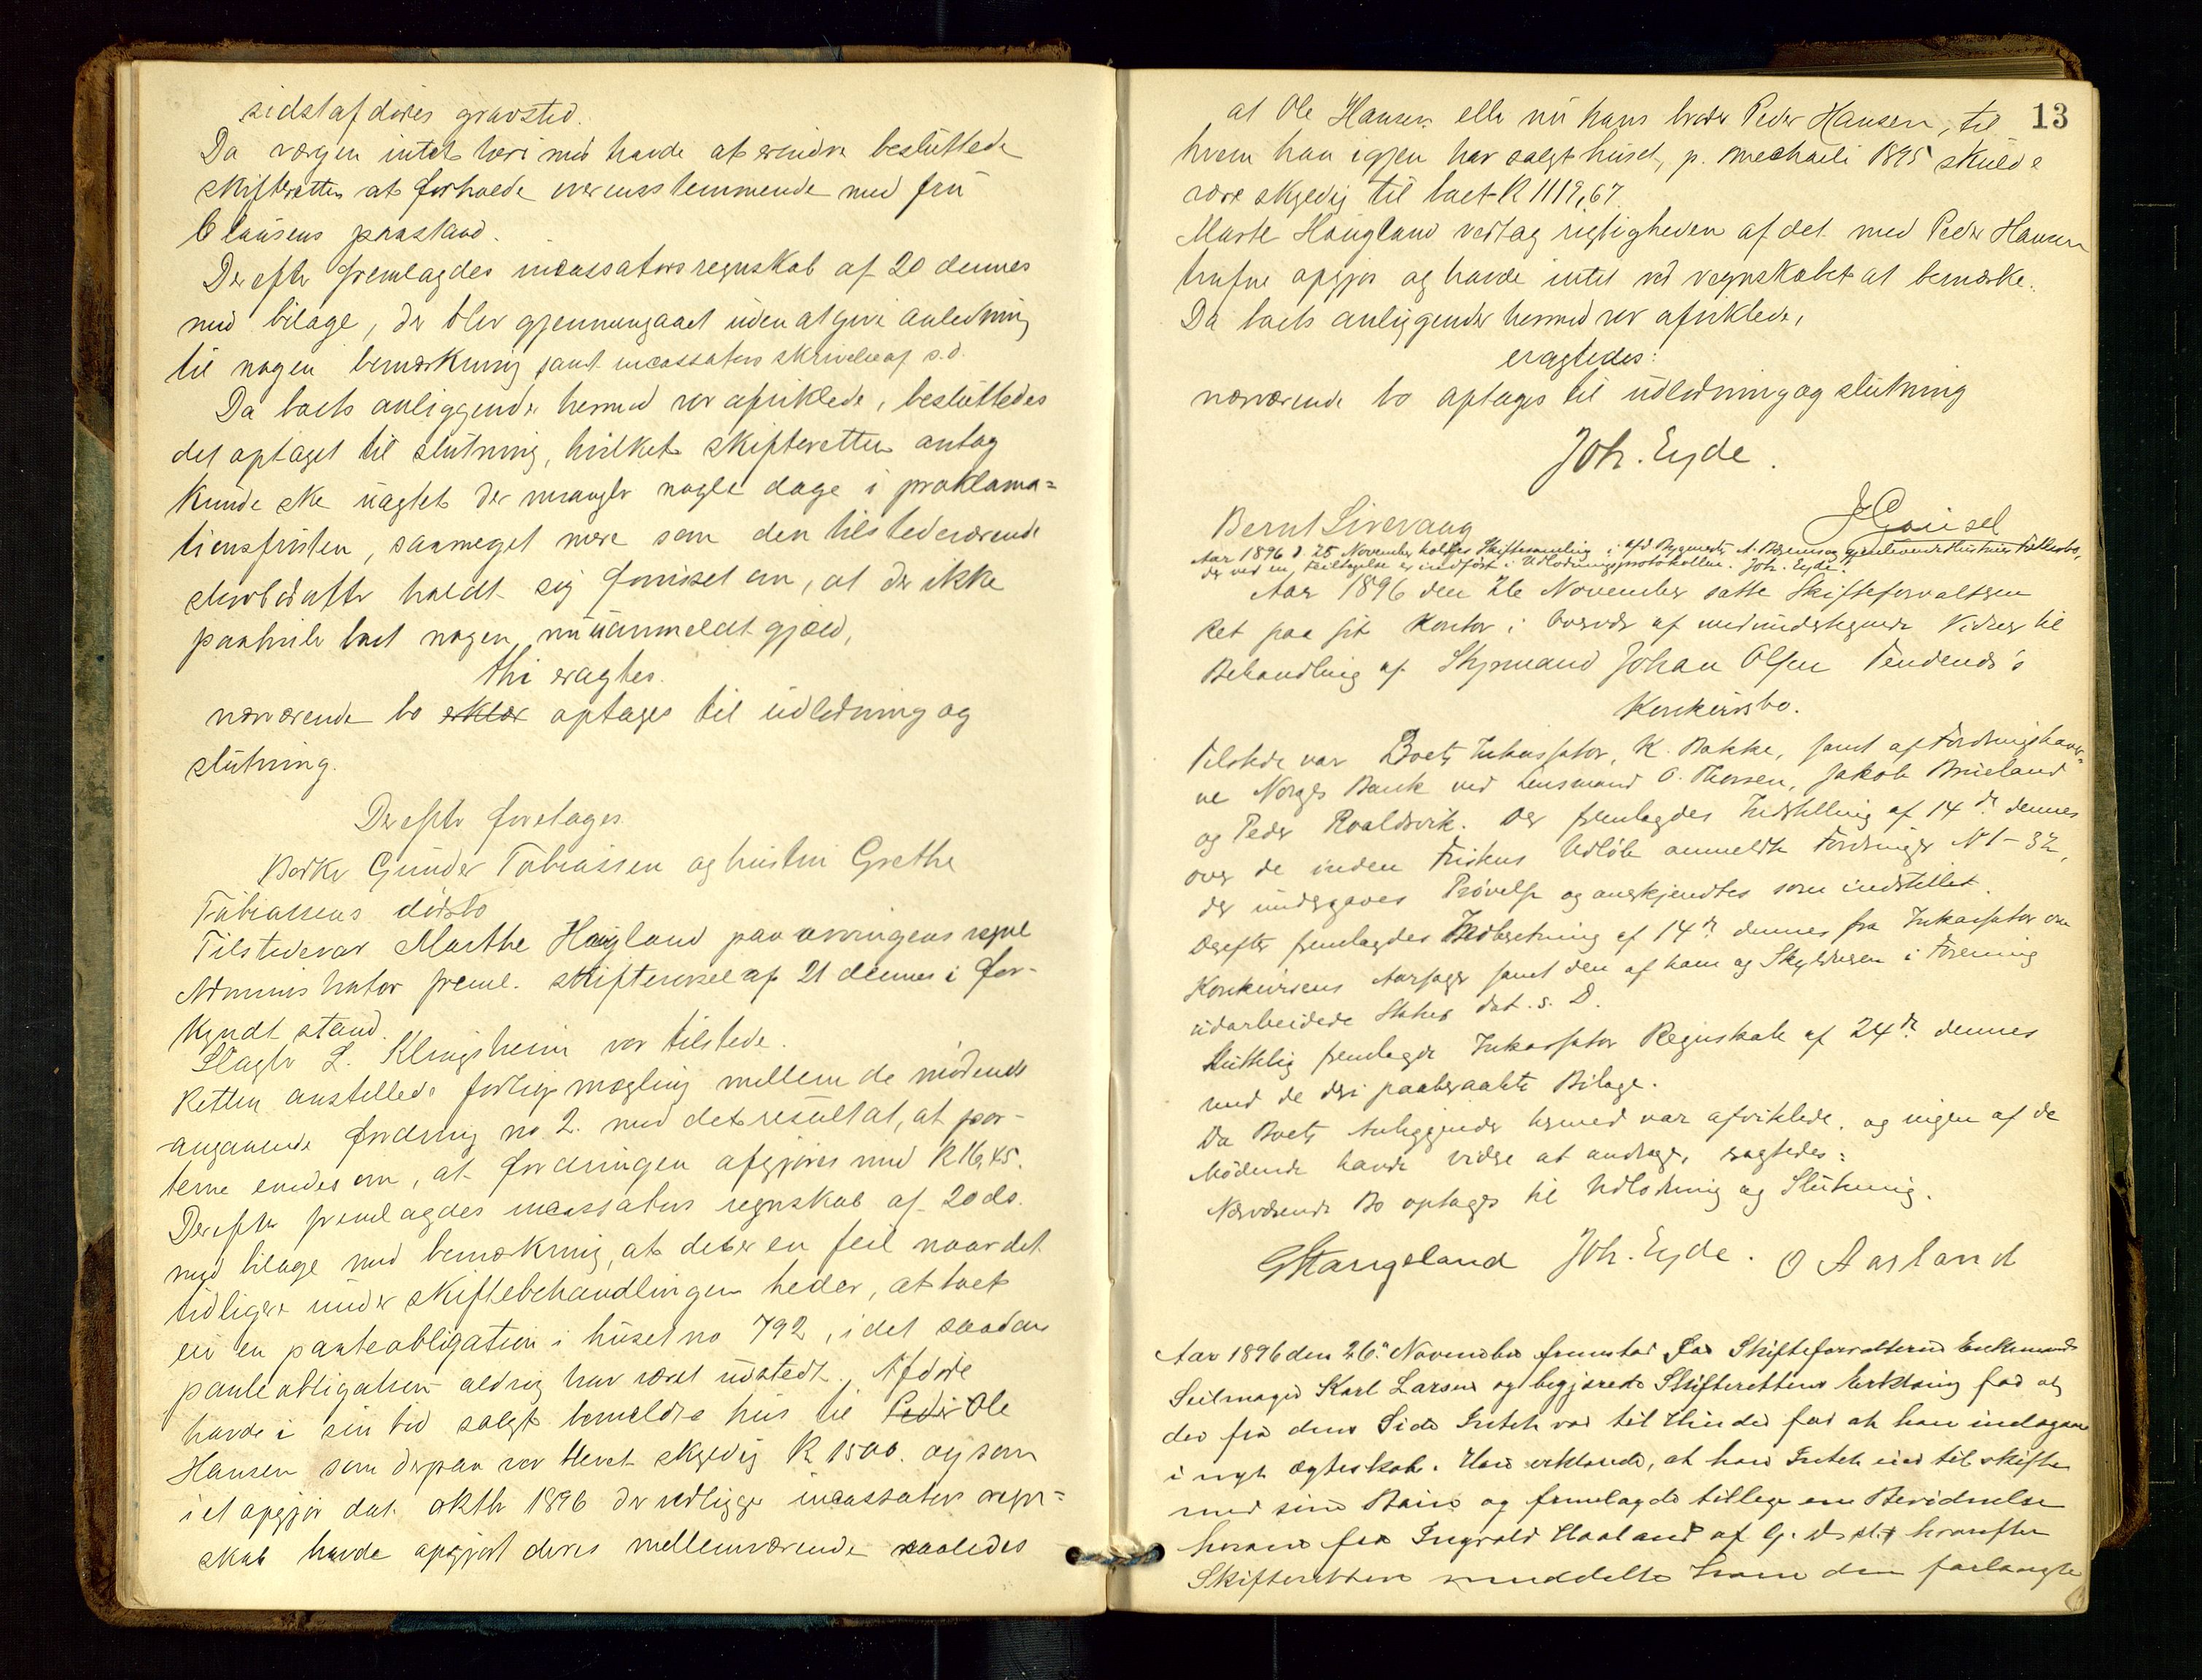 sidstafdødes gravsted.
Da værgen intet heri mod havde at erindre besluttede
skifteretten at forholde overensstemmende med fru
Clausens paastand.
Derefter fremlagdes incassators regnskab af 20 dennes
med bilage, der blev gjennemgaaet uden at give anledning
til nogen bemærkning samt incassators skrivelse af s.d.
Da boets anliggender hermed var afviklede, besluttedes
det optaget til slutning, hvilket skifteretten antog
kunde ske uagtet der mangler nogle dage i proklama=
tionsfristen, saameget mere som den tilstedeværende
holdt sig forvisset om, at der ikke
paahviler boet nogen nu uanmeldt gjæld,
thi eragtes.
nærværende bo erklær optages til udlodning og
slutning.
Derefter foretages
Bødker Gunder Tobiassen og hustru Grethe
Tobiassens dødsbo
Tilstede var Marthe Haugland paa arvingens vegne
Administrator freml. skiftevæsel af 21 dennes i for-
kyndt stand.
Slagter L. Klingsheim var tilstede.
Retten anstillede forligsmægling mellem de mødende
angaaende fordring no 2. med det resultat, at par-
terne enedes om, at fordringen afgjøres med K 16,45.
Derefter fremlagdes incassators regnskab af 20 ds.
med bilage med bemærkning, at det er en feil naar det
tidligere under skiftebehandlingen heder, at boet
eier en panteobligation i huset no 792, idet saadan
panteobligation aldrig har været udstedt. Afdøde
havde i sin tid solgt bemeldte hus til Peder Ole
Hansen som derpaa var blevet skyldig K 1500. og som
i et opgjør dat. oktbr 1896 der vedligger incassators regn=
skab havde opgjort deres mellemværende saaledes
13
at Ole Hansen eller nu hans broder Peder Hansen, til
hvem han igjen har solgt huset, p. Mechaeli 1895 skulde
være skyldig til boet K 1119,67.
Marte Haugland vedtog rigtigheden af det med Peder Hansen
trufne opgjør og havde intet ved regnskabet at bemærke.
Da boets anliggender hermed var afviklede,
eragtedes:
nærværende bo optages til udlodning og slutning
Joh. Eyde.
Bernt Sirevaag
J Gausel
Aar 1896 d. 25 November holdtes Skiftesamling i afd. Bygmester A. og gjenlevende Hustrues Fællesbo,
der ved en Feiltagelse er indført i Udlodningsprotokollen. Joh. Eyde.
Aar 1896 den 26 November satte Skifteforvalteren
Ret paa sit Kontor i Overvær af medundertegnede Vidner til
Behandling af Styrmand Johan Olsen Tendenes's
Konkursbo.
Tilstede var Boets Inkassator, K. Bakke, samt af Fordringshaver=
ne Norges Bank ved Lensmand O. Thorsen, Jakob Brueland
og Peder Roaldsvik. Der fremlagdes Indstilling af 14de dennes
over de inden Fristens Udløb anmeldte Fordringer No 1-32,
der undergaves Prøvelse og anerkjendtes som indstillet.
Derefter fremlagdes Indberetning af 14de dennes fra Inkassator om
Konkursens Aarsager samt den af ham og Skyldneren i Forening
udarbeidede Status dat. s. D.
Sluttelig fremlagde Inkassator Regnskab af 24de dennes
med de deri paaberaabte Bilage.
Da Boets Anliggender hermed var afviklede, og ingen af de
Mødende havde videre at andrage, eragtedes:
Nærværende Bo optages til Udlodning og Slutning.
G Stangeland Joh. Eyde. O Aarland
Aar 1896 den 26. November fremstod for Skifteforvalteren Enkemand
Seilmager Karl Larsen og begjærede Skifterettens Erklæring for at
der fra dens Side Intet var til Hinder for at han indegaar
i nyt Ægteskab. Han erklærede, at have Intet eie til skifte
med sine Børn og fremlagde tillige en Bevidnelse
herom fra Ingvald Haaland af G. D. hvorefter
Skifteretten meddelte ham den forlangte